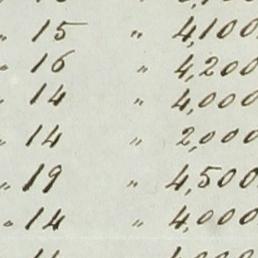 " 15 " 4,100
" 16 " 4,200
" 14 " 4,000
" 14 " 2,000
" 19 " 4,500
" 14 " 4,000